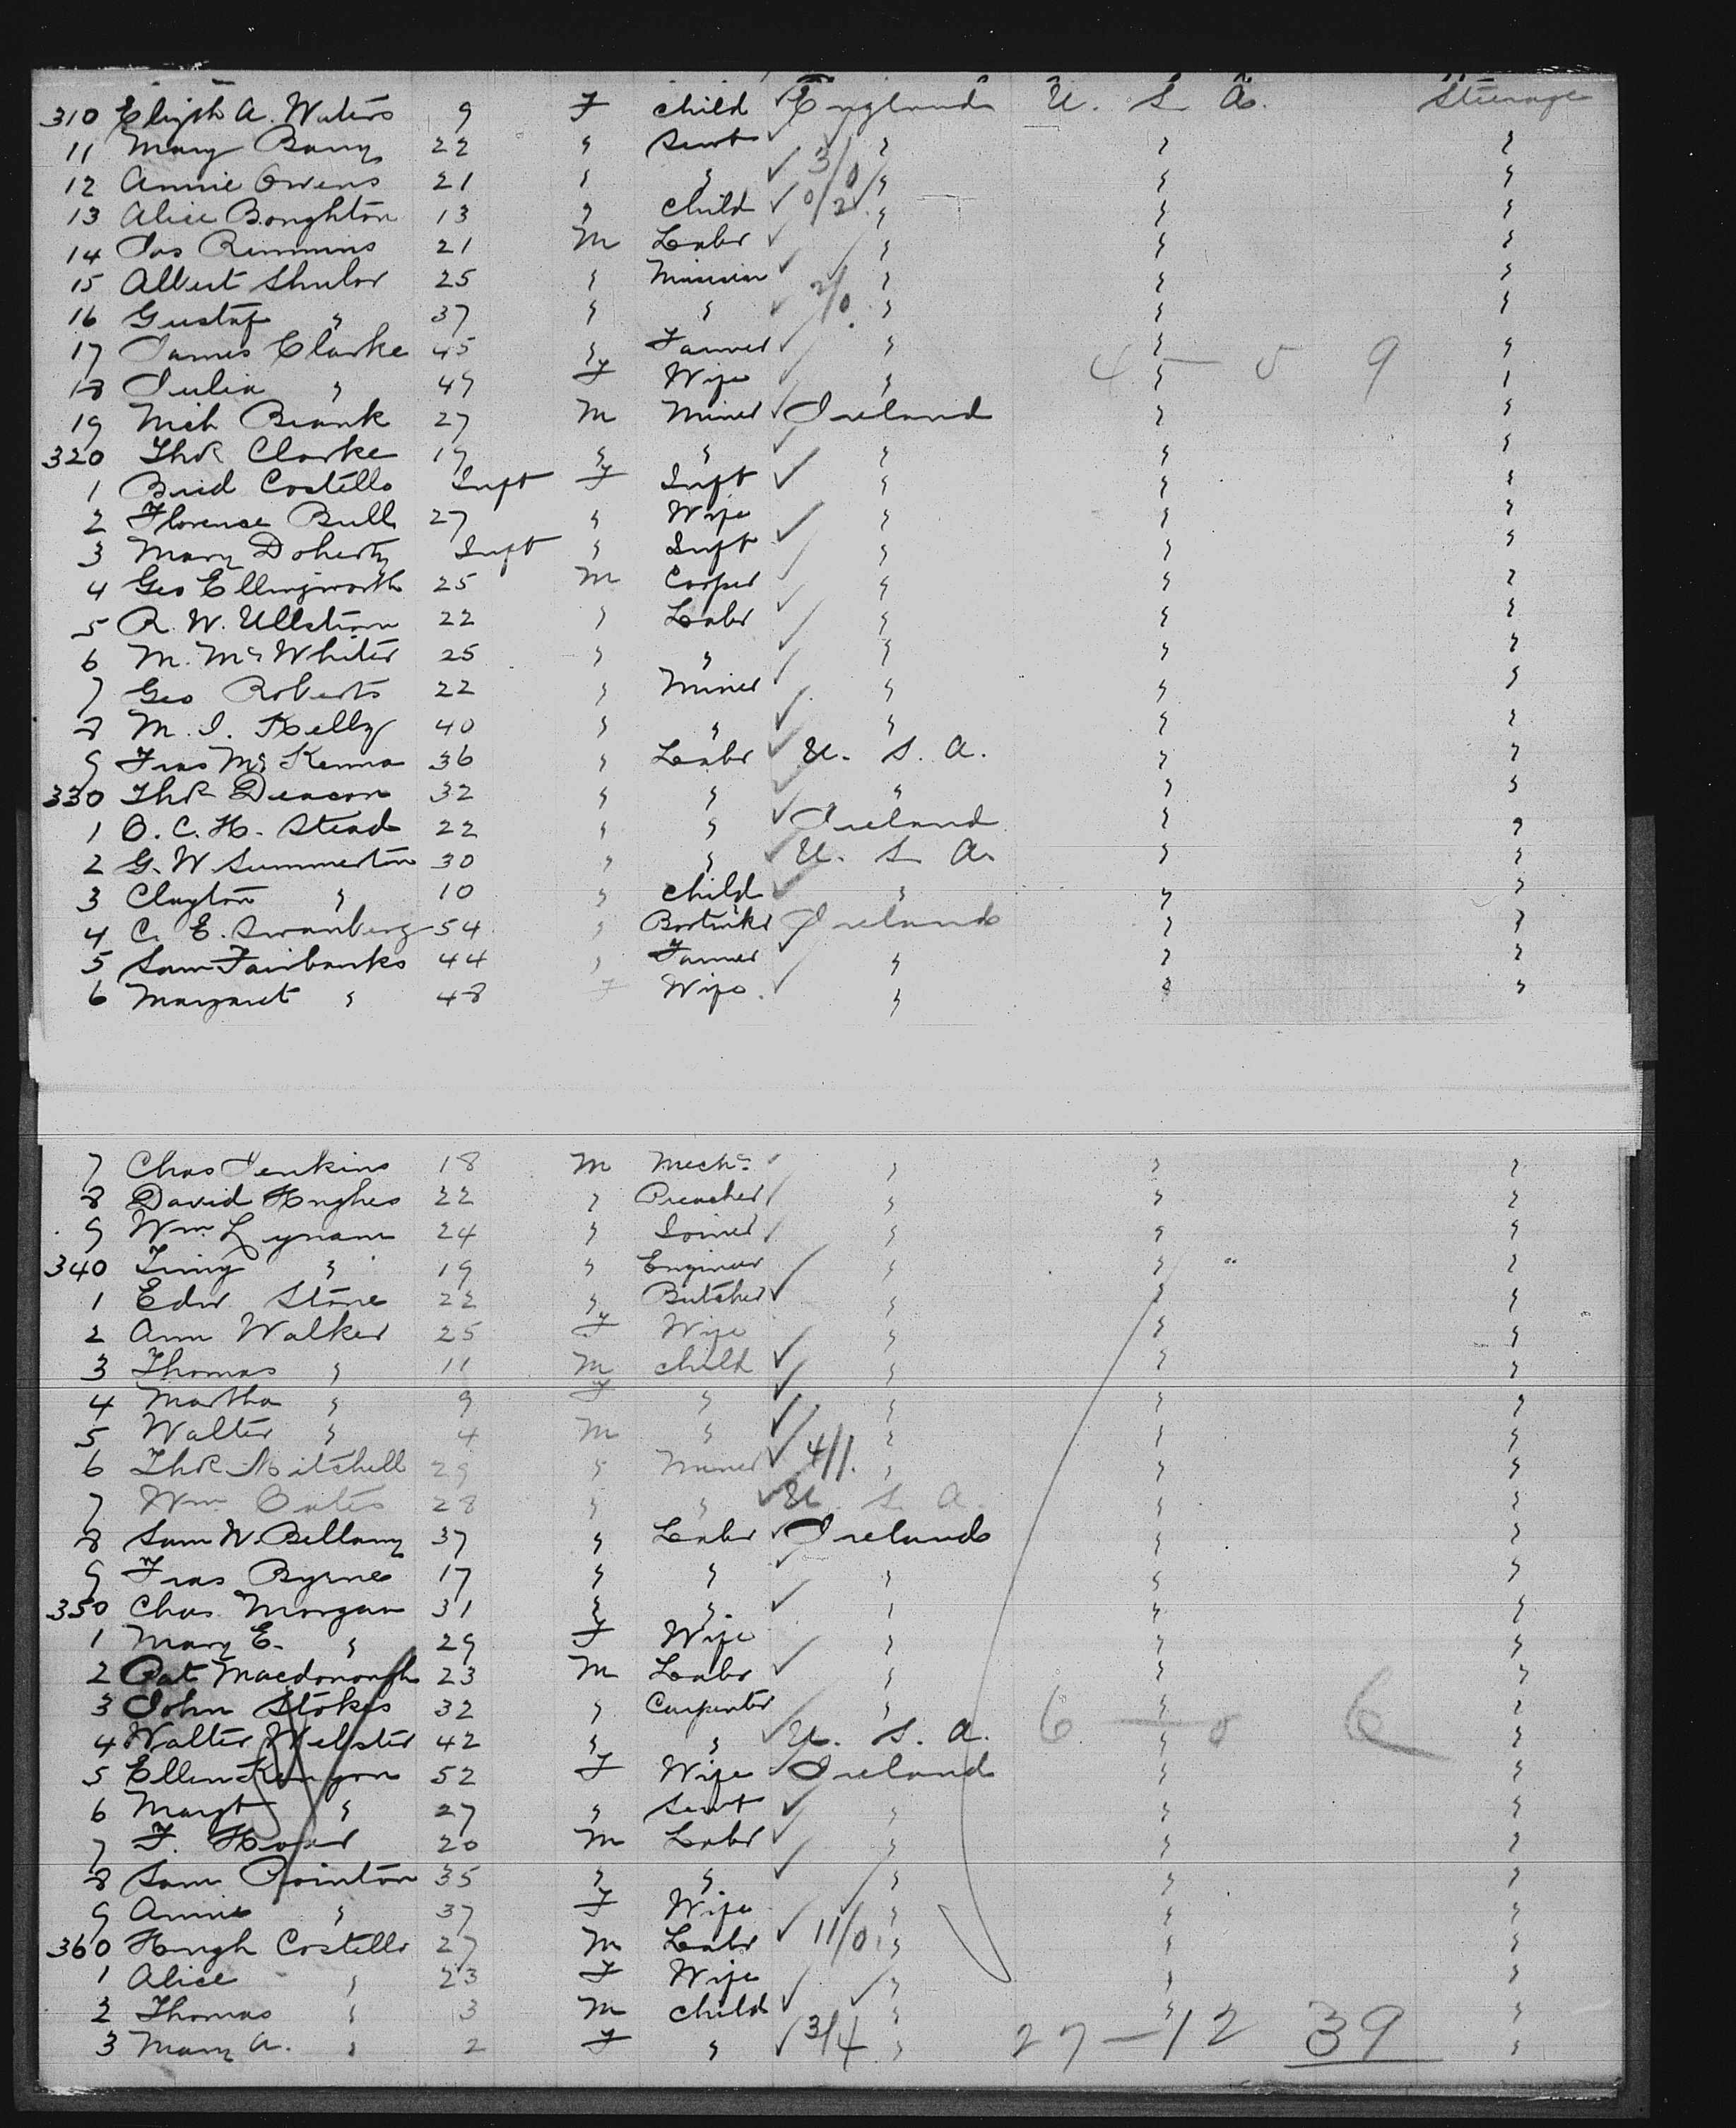 310 Elizth A. Waters 9 F child England U. S. A. Steerage
11 Mary Barry 22 " Servt " " "
12 Annie Owens 21 " " 3/0 " " "
13 Alice Boughton 13 " child 0/2 " " "
14 Jas Rimmins 21 M Labr " " "
15 Albert Shulor 25 " Musician " " "
16 Gustaf " 37 " " 2/0 " " "
17 James Clarke 45 " Farmer " " "
4 - 5 9
18 Julia " 49 F Wife " " "
19 Mich 27 M Miner Ireland " "
320 Thos Clarke 19 " " " " "
1 Brid Costello Inft F Inft " " "
2 Florence Bull 27 " Wife " " "
3 Mary Doherty Inft " Inft " " "
4 Geo Ellingworth 25 M Cooper " " "
5 R. W. Ullstrom 22 " Labr " " "
6 M. McWhiter 25 " " " " "
7 Geo Roberts 22 " Miner " " "
8 M. J. Kelly 40 " " " " "
9 Fras McKenna 36 " Labr U. S. A. " "
330 Thos Deacon 32 " " " " "
1 O. C. H. Stead 22 " " Ireland " "
2 G. W. Summerton 30 " " U. S. A. " "
3 Clayton " 10 " child " " "
4 C. E. Swanberg 54 " Ireland " "
5 Sam Fairbanks 44 " Farmer " " "
6 Margaret " 48 F Wife " " "
7 Chas Jenkins 18 M Mechc " " "
8 David Hughes 22 " Preacher " " "
9 Wm Lynam 24 " Joiner " " "
340 Timy " 19 " Engineer " " "
1 Edw Stone 22 " Butcher " " "
2 Ann Walker 25 F Wife " " "
3 Thomas " 11 M child " " "
4 Martha " 9 F " " " "
5 Walter " 4 M " " " "
6 Thos Mitchell 29 " Miner 4/1. " " "
7 Wm Oates 28 " " U. S. A. " "
8 Sam W. Bellamy 37 " Labr Ireland " "
9 Fras Byrne 17 " " " " "
350 Chas Morgan 31 " " " " "
1 Mary E. " 29 F Wife " " "
2 Pat Macdonough 23 M Labr " " "
3 John Stokes 32 " Carpenter " " "
6 - 0 6
4 Walter Webster 42 " " U. S. A. " "
5 Ellen Kenyon 52 F Wife Ireland " "
6 Margt " 27 " Servt " " "
7 F. 20 M Labr " " "
8 Sam Pointon 35 " " " " "
9 Annie " 37 F Wife " " "
360 Hugh Costello 27 M Labr 11/0 " " "
1 Alice " 23 F Wife " " "
2 Thomas " 3 M child " " "
3 Mary A. " 2 F " 3/4 " " "
27 - 12 39